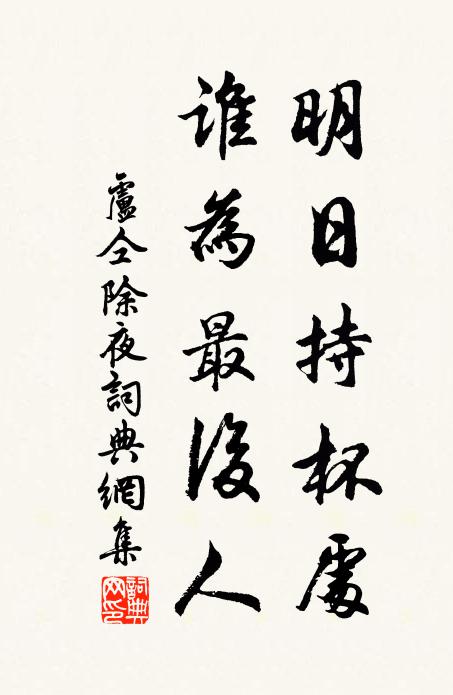 明日持杯處
誰為最後人
盧仝除夜詞典網集
詞典网印